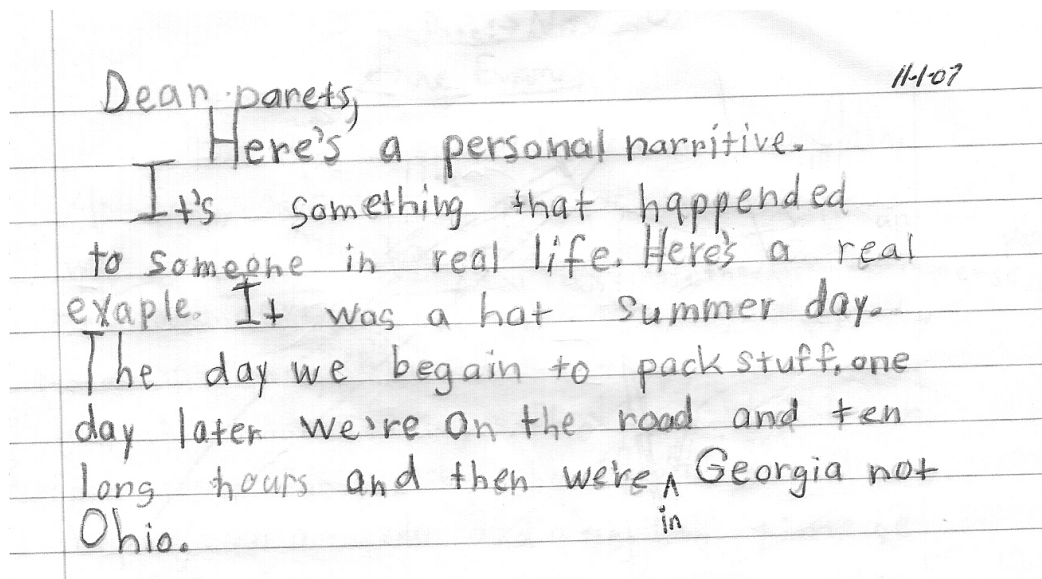 11-1-07
Dear parets,
Here's a personal narritive.
It's something that happended
to someone in real life. Here's a real
exaple. It was a hot summer day.
The day we begain to pack stuff, one
day later we're on the road and ten
long hours and then we're ^ Georgia not
in
Ohio.